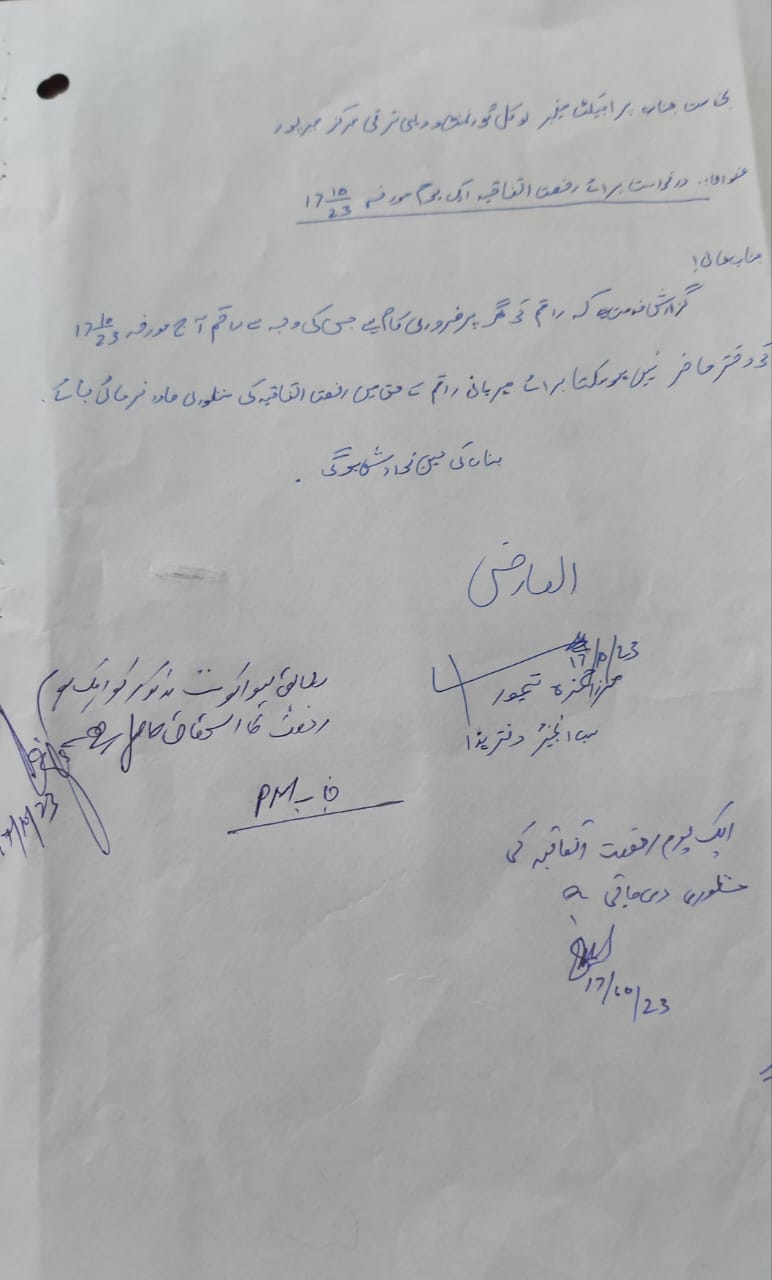 بخدمت جناب پراجیکٹ منیجر لوکل گورنمنٹ و دیہی ترقی مرکز میرپور
عنوان:۔ درخواست برائے رخصت اتفاقیہ ایک یوم مورخہ 17/10/23
جناب عالی!
گزارش خدمت ہے کہ راقم کو گھر پر ضروری کام ہے جس کی وجہ سے راقم آج مورخہ 17/10/23
کو دفتر حاضر نہیں ہو سکتا برائے مہربانی راقم کے حق میں رخصت اتفاقیہ کی منظوری صادر فرمائی جائے۔
جناب کی عین نوازش ہوگی۔
العارض
17/10/23
مرزا حمزہ تیمور
سب انجینئر دفتر ہذا
مذکور کو ایک یوم
رخصت کا استحقاق حاصل ہے
17/10/23
جناب PM
ایک یوم رخصت اتفاقیہ کی
منظوری دی جاتی ہے
17/10/23